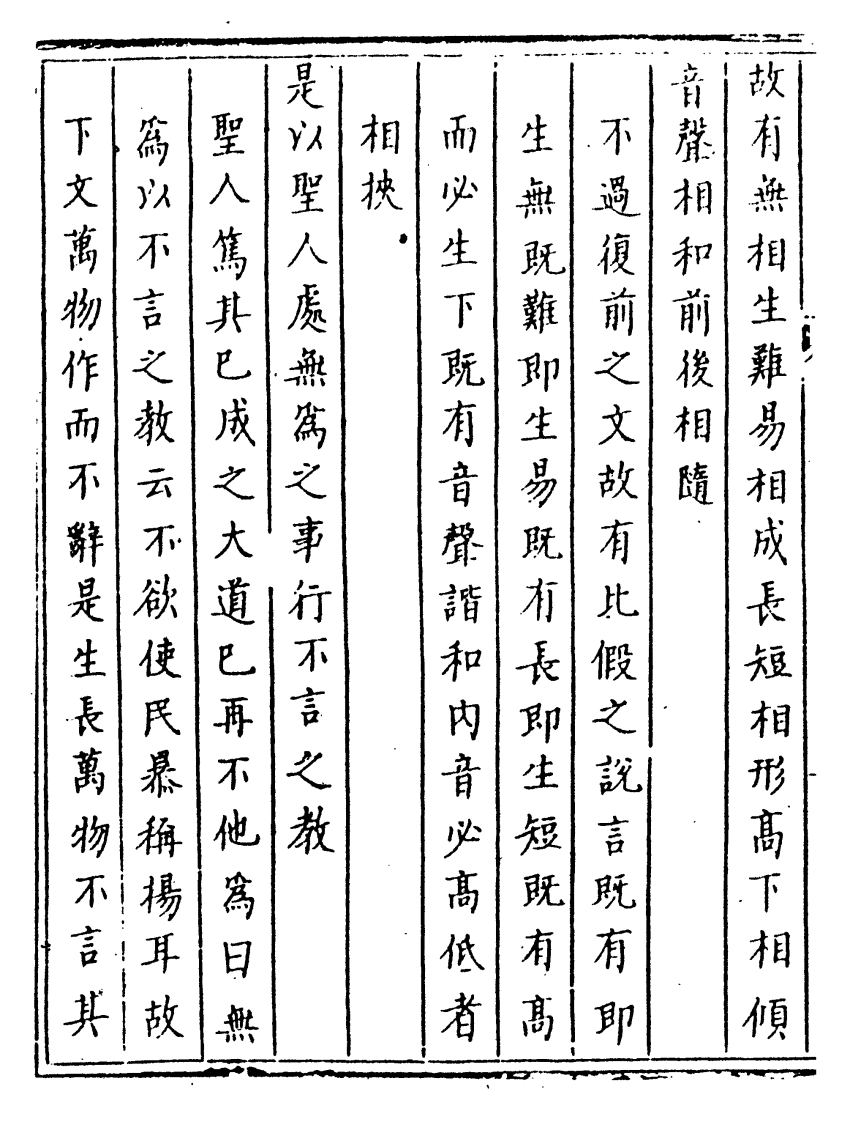 故有無相生難易相成長短相形髙下相傾
音聲相和前後相隨
不過復前之文故有比假之說言既有即
生無既難即生易既有長即生短既有髙
而必生下既有音聲諧和内音必髙低者
相挾
是以聖人處無為之事行不言之教
聖人篤其已成之大道已再不他為曰無
為以不言之教云不欲使民慕稱楊耳故
下文萬物作而不辭是生長萬物不言其